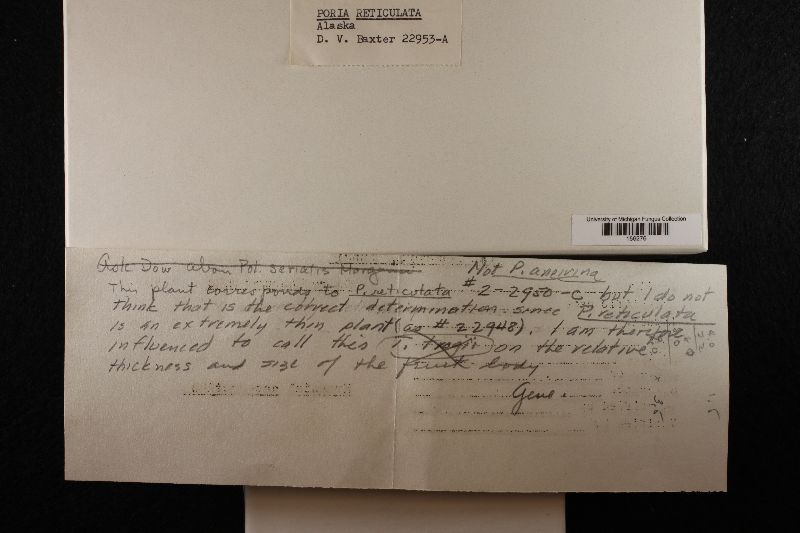 PORIA RETICULATA
Alaska
D. V. Baxter 22953-A
University of Michigan Fungus Collection
Ask Dow about Pol. serialis
Not P. aneirina
This plant corresponds to P. reticulata # 2-2950-C but I do not
think that is the correct determination since P. reticulata
is an extremely thin plant (as # 22948). I am therefore
influenced to call this T. on the relative
thickness and size of the fruit body
Gene.